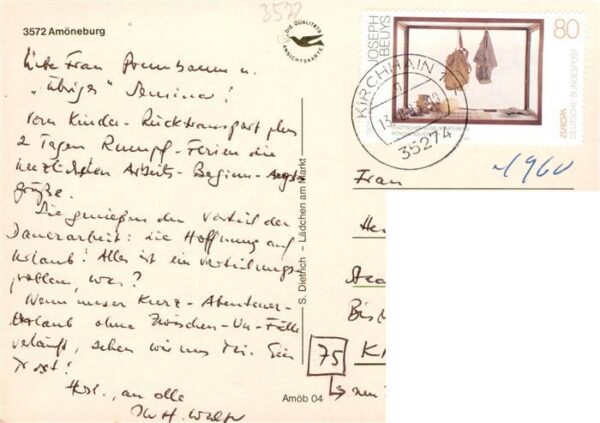 3572
3572 Amöneburg
DIE QUALITÄTS
ANSICHTSKARTE
JOSEPH
BEUYS
80
EUROPA
DEUTSCHE BUNDESPOST
KIRCHHAIN 1
35274
Liebe Frau u.
"übriges" Seminar!
Vom Kinder-Rücktransport plus
2 Tagen Rumpf-Ferien die
herzlichsten Arbeits-Beginn-Angst-
grüße.
Sie genießen den Vorteil der
Dauerarbeit: die Hoffnung auf
Urlaub! Alles ist ein Verteilungs-
problem, was?
Wenn unser Kurz-Abenteuer-
Urlaub ohne Zwischen-Un-Fälle
verläuft, sehen wir uns Mi. Ein
Trost!
Herzl., an alle
Ihr H.
S. Dietrich - Lädchen am Markt
Amöb 04
Frau
~1960
75